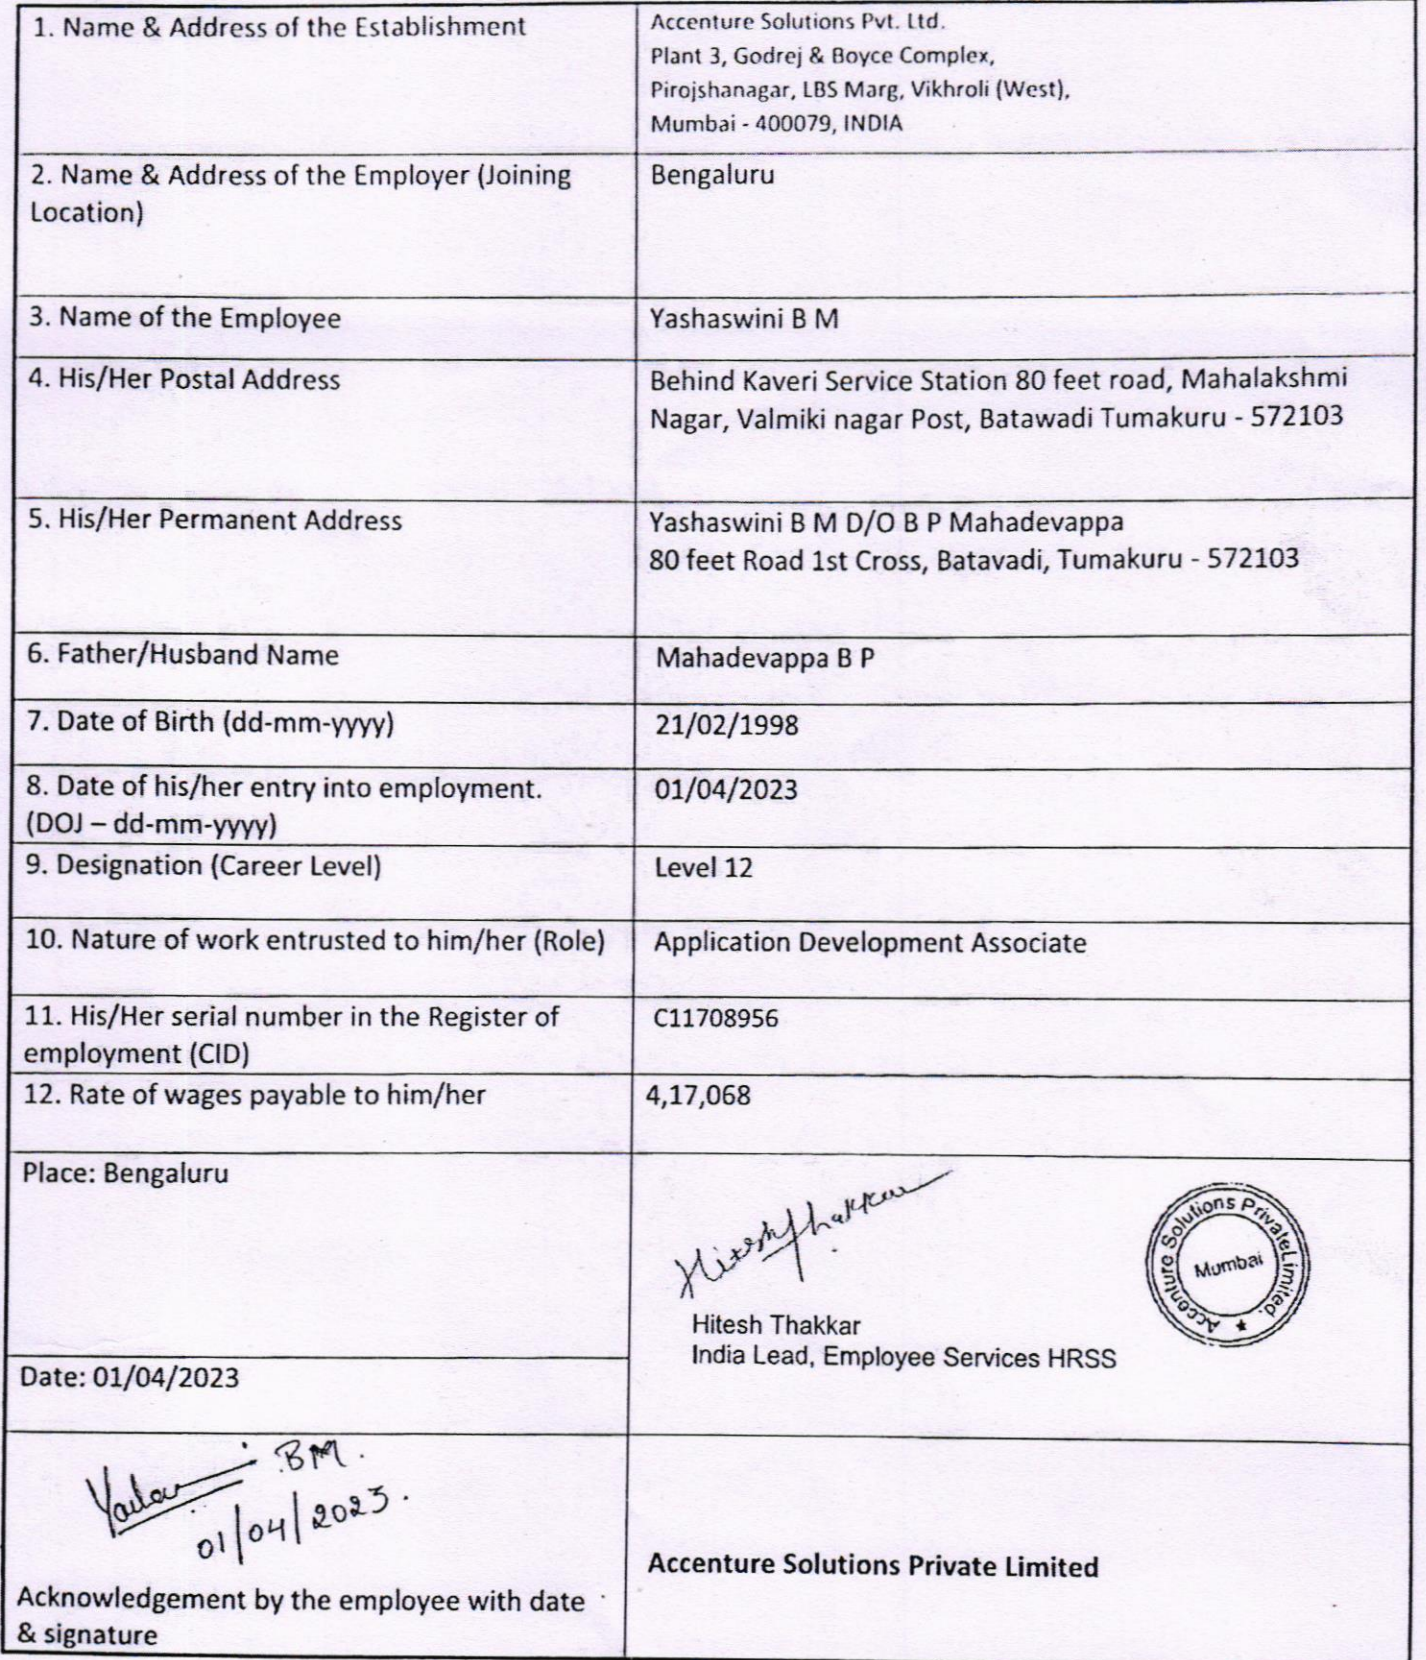 1. Name & Address of the Establishment
Accenture Solutions Pvt. Ltd.
Plant 3, Godrej & Boyce Complex,
Pirojshanagar, LBS Marg, Vikhroli (West),
Mumbai - 400079, INDIA
2. Name & Address of the Employer (Joining
Location)
Bengaluru
3. Name of the Employee
Yashaswini B M
4. His/Her Postal Address
Behind Kaveri Service Station 80 feet road, Mahalakshmi
Nagar, Valmiki nagar Post, Batawadi Tumakuru - 572103
5. His/Her Permanent Address
Yashaswini B M D/O B P Mahadevappa
80 feet Road 1st Cross, Batavadi, Tumakuru - 572103
6. Father/Husband Name
Mahadevappa B P
7. Date of Birth (dd-mm-yyyy)
21/02/1998
8. Date of his/her entry into employment.
(DOJ – dd-mm-yyyy)
01/04/2023
9. Designation (Career Level)
Level 12
10. Nature of work entrusted to him/her (Role)
Application Development Associate
11. His/Her serial number in the Register of
employment (CID)
C11708956
12. Rate of wages payable to him/her
4,17,068
Place: Bengaluru
Hitesh Thakkar
Accenture Solutions Private Limited.
Mumbai
Hitesh Thakkar
India Lead, Employee Services HRSS
Date: 01/04/2023
BM.
01/04/2023.
Acknowledgement by the employee with date
& signature
Accenture Solutions Private Limited